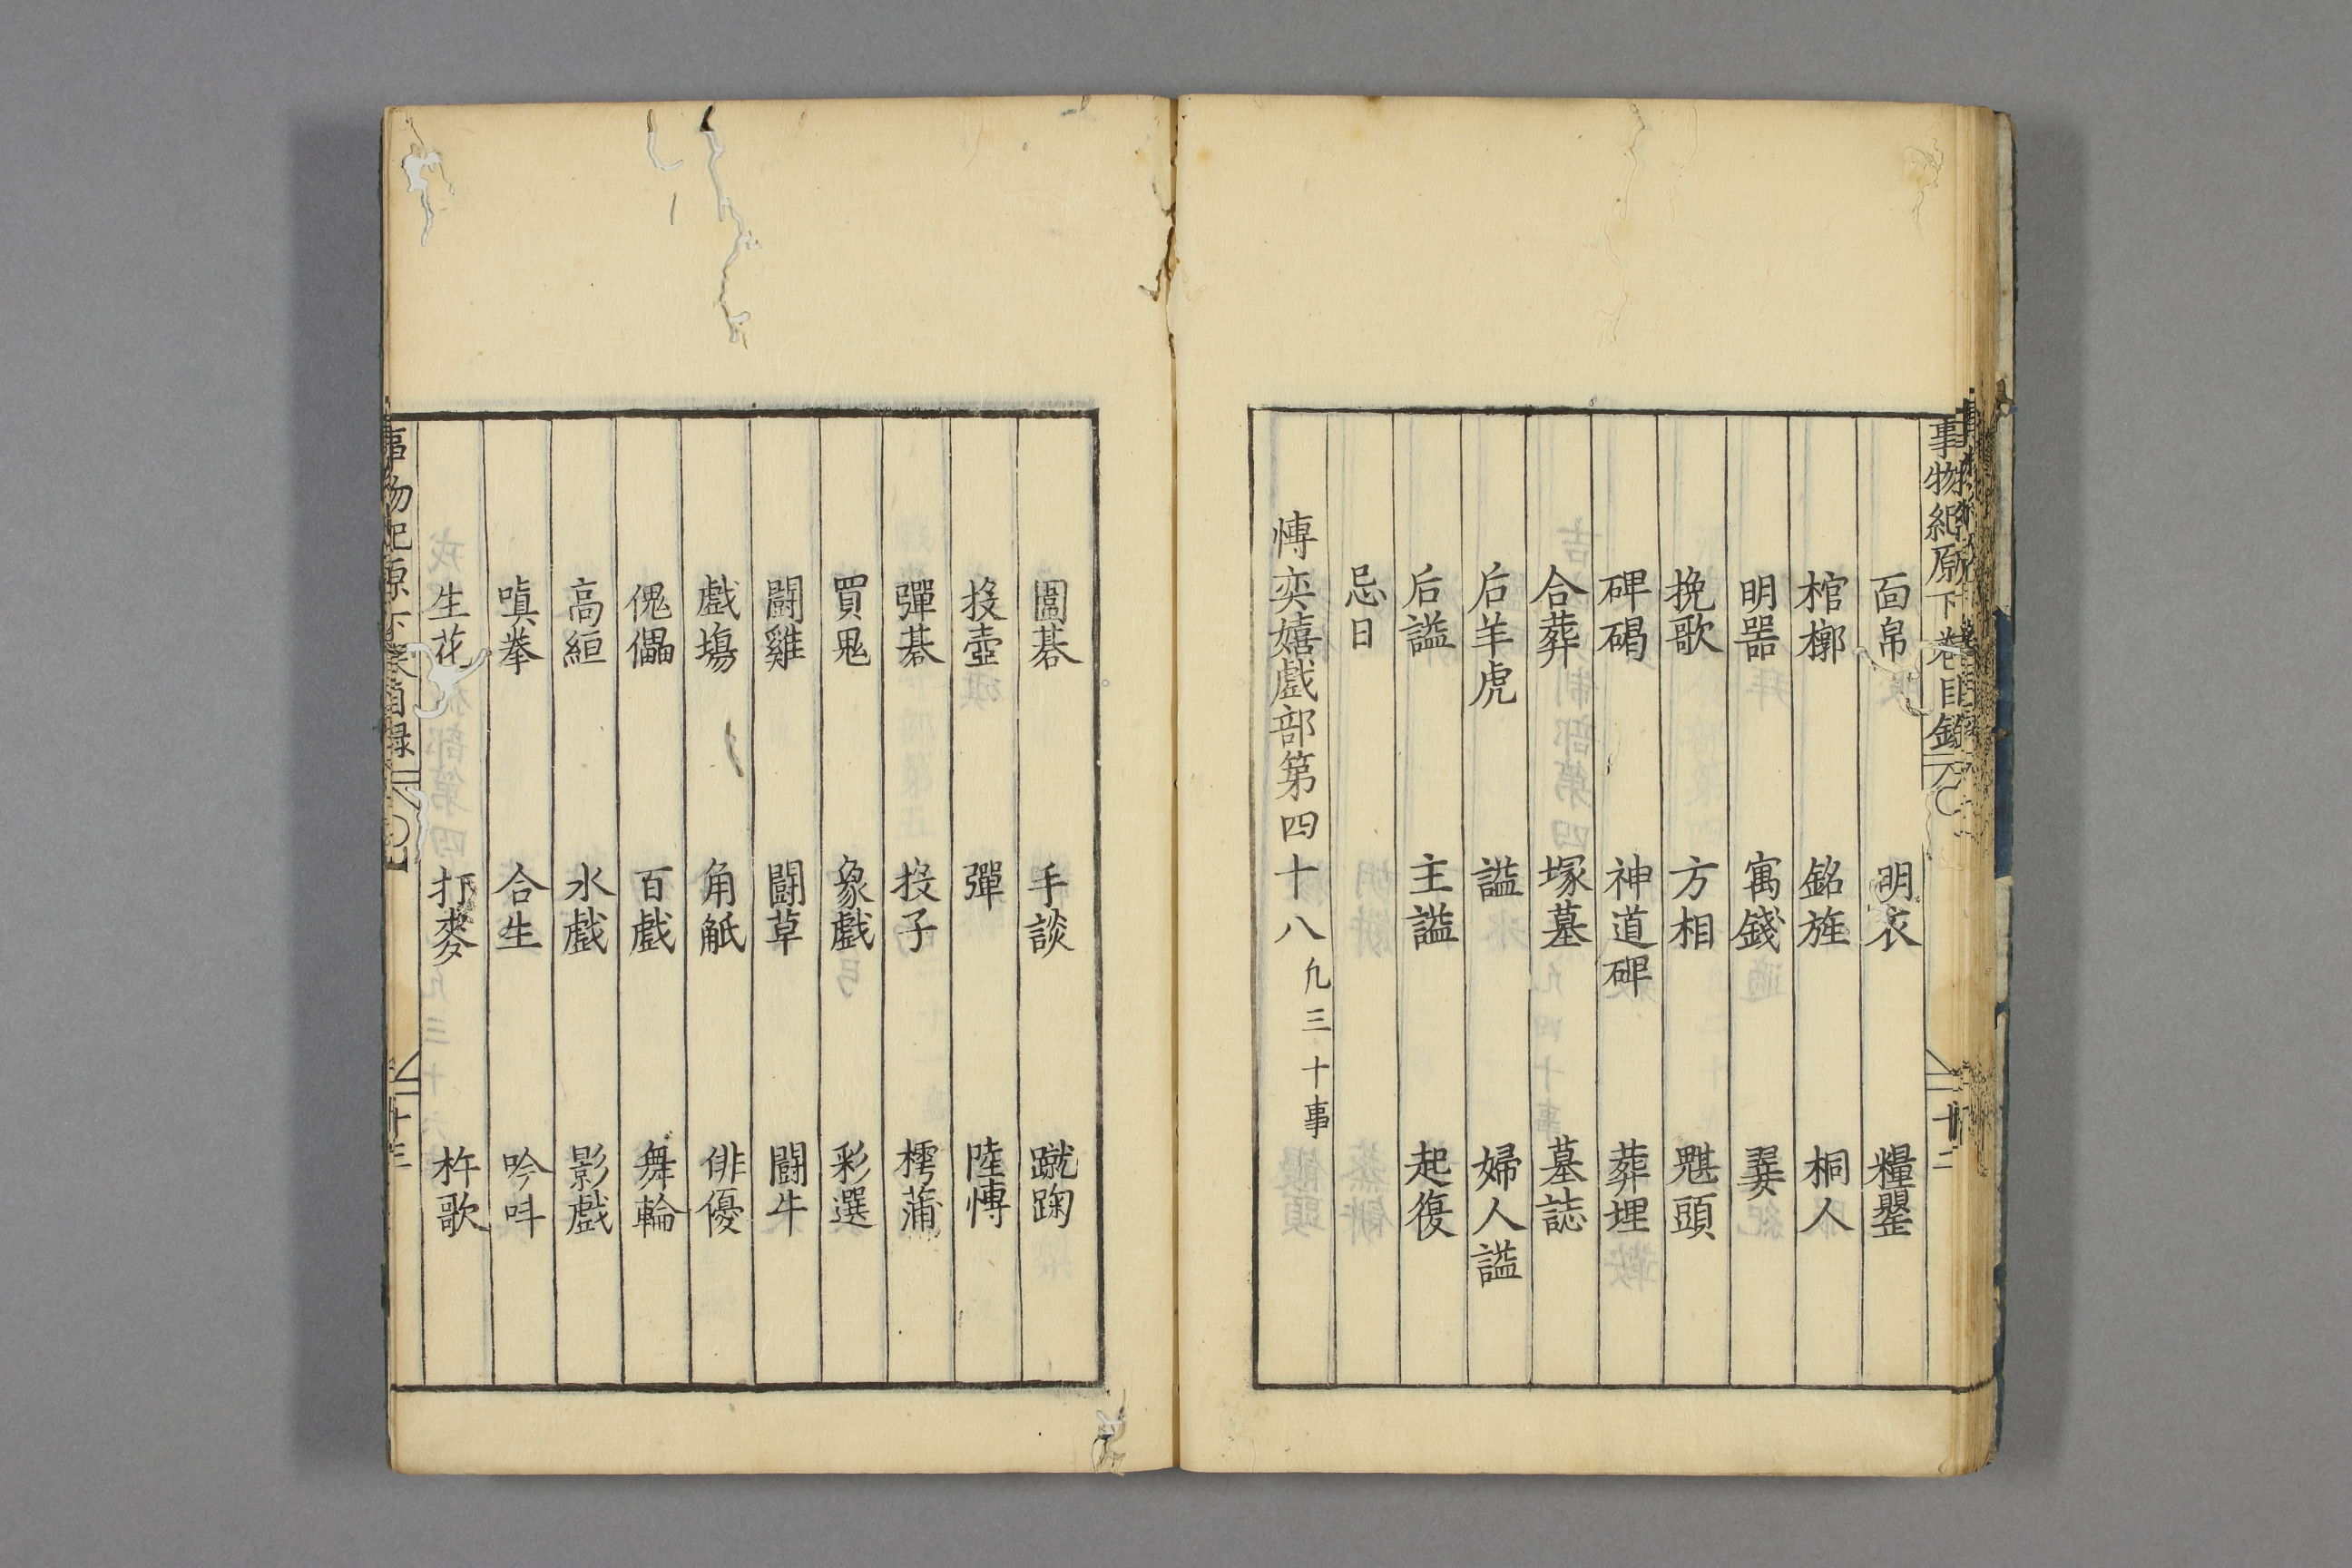 事物紀原下卷目錄
十二
面帛 明衣 糧罌
棺槨 銘旌 桐人
明器 寓錢 翣
挽歌 方相 魌頭
碑碣 神道碑 葬埋
合葬 塚墓 墓誌
后羊虎 謚 婦人謚
后謚 主謚 起復
忌日
愽奕嬉戲部第四十八 凢三十事
圍碁 手談 蹴踘
投壺 彈 陸愽
彈碁 投子 樗蒲
買鬼 象戲 彩選
闘雞 闘草 闘牛
戲塲 角觝 俳優
傀儡 百戲 舞輪
高絙 水戲 影戲
嗔拳 合生 吟呌
生花 打麥 杵歌
事物紀原下卷目錄
十三